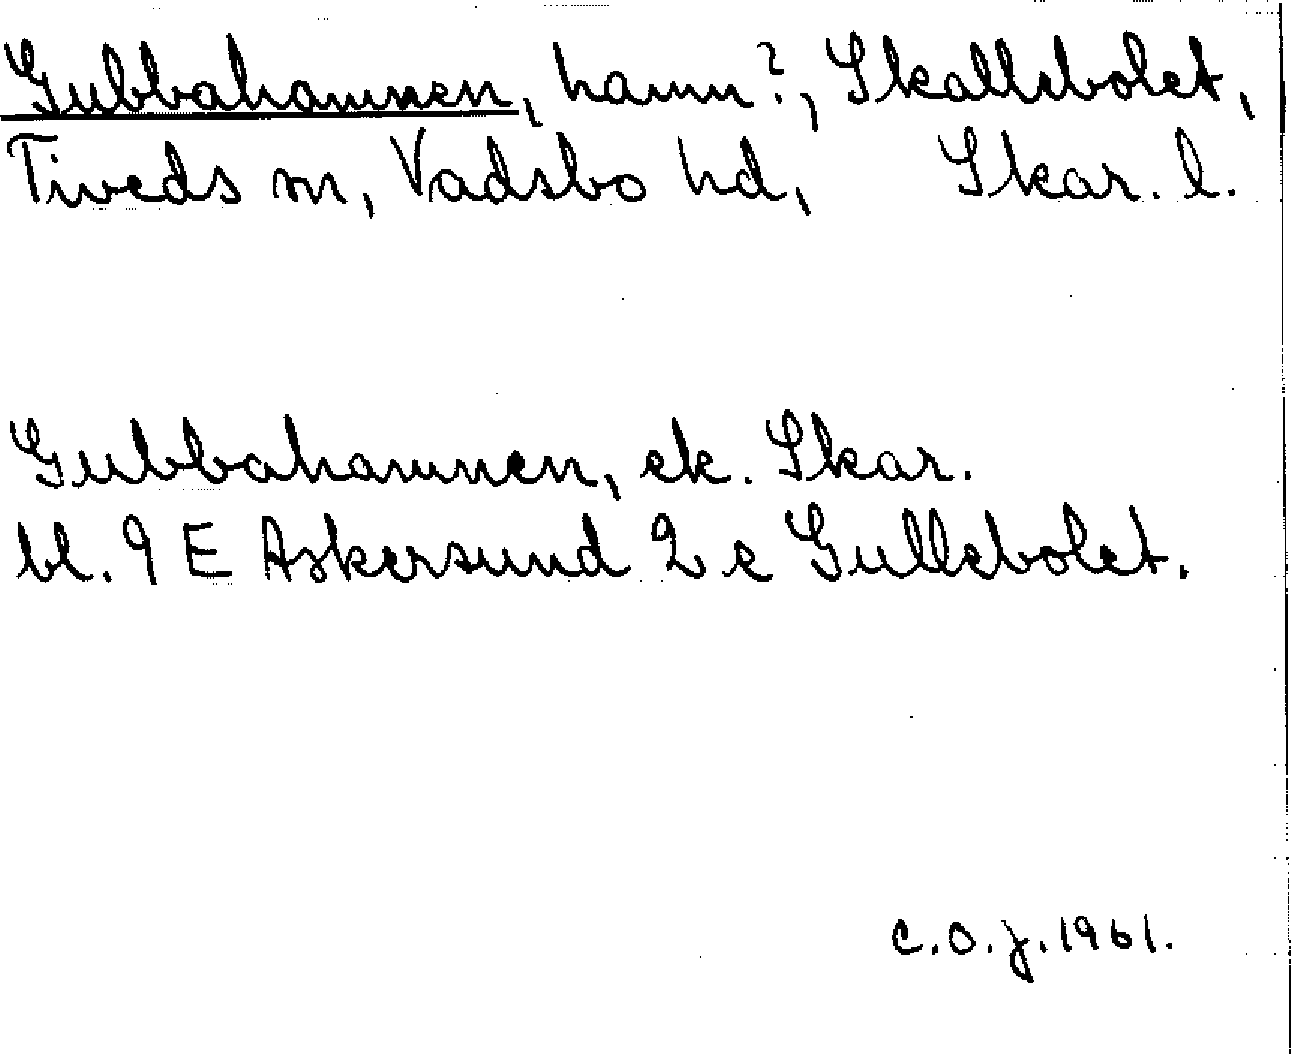 Gubbahamnen, hamn?, Skallebolet,
Tiveds sn, Vadsbo hd, Skar. l.
Gubbahamnen, ek. Skar.
bl. 9 E Askersund 2 e Gullebolet.
C.O.J. 1961.